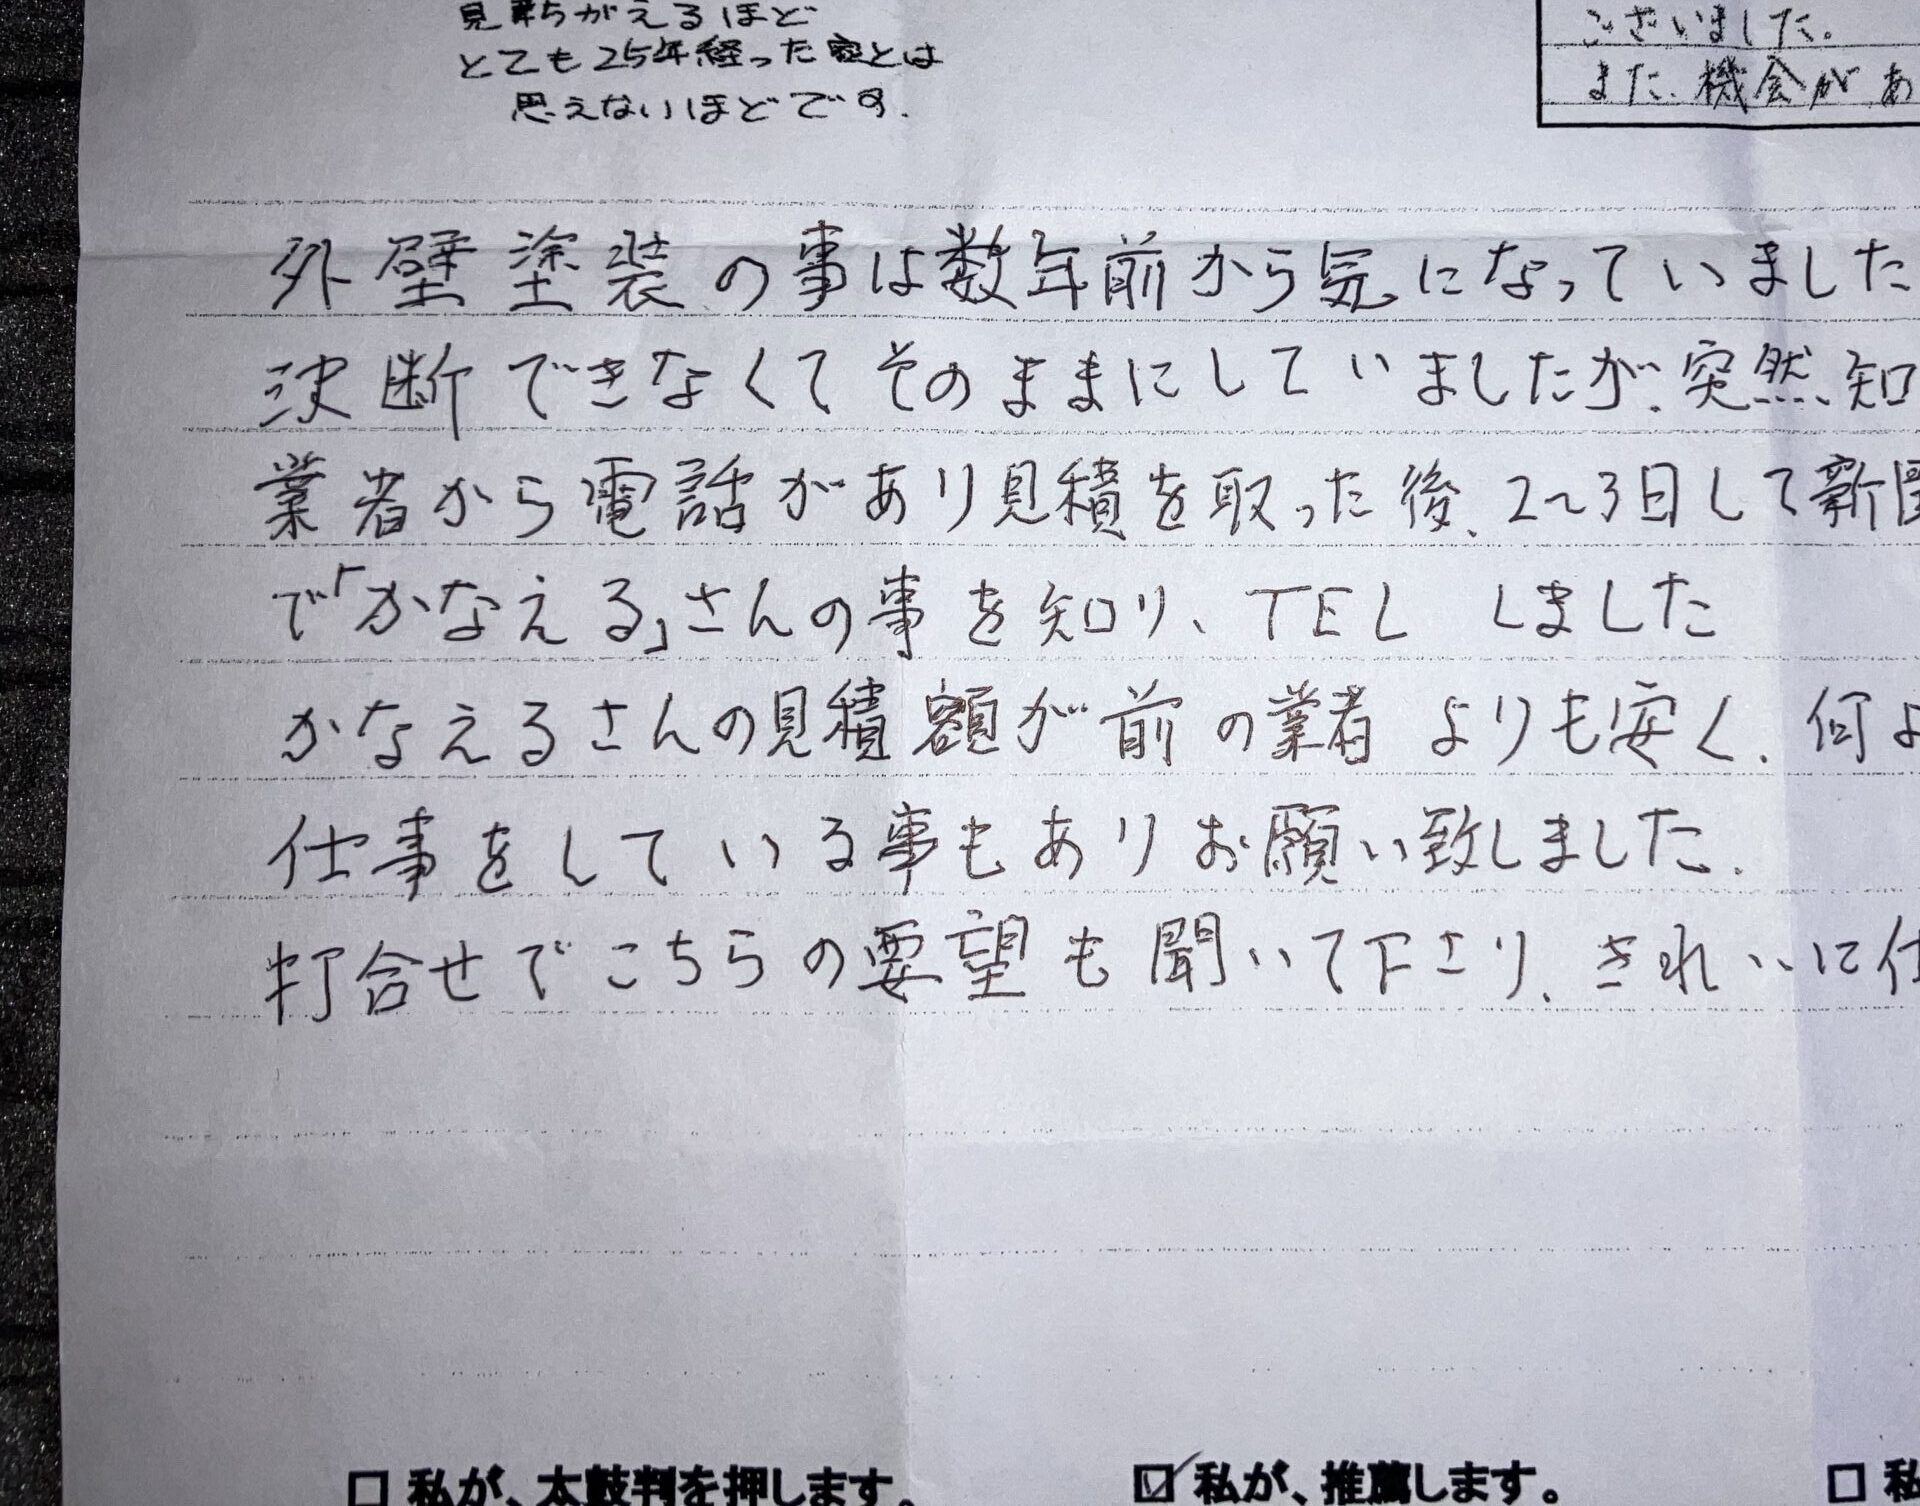 見違がえるほど
とても25年経った家とは
思えないほどです.
ございました。
また、機会があ
外壁塗装の事は数年前から気になっていました
決断できなくてそのままにしていましたが、突然、知
業者から電話があり見積を取った後、2〜3日して新聞
で「かなえる」さんの事を知り、TEL しました
かなえるさんの見積額が前の業者よりも安く、何よ
仕事をしている事もありお願い致しました.
打合せでこちらの要望も聞いて下さり、きれいに仕
□ 私が、太鼓判を押します。
☑ 私が、推薦します。
□ 私